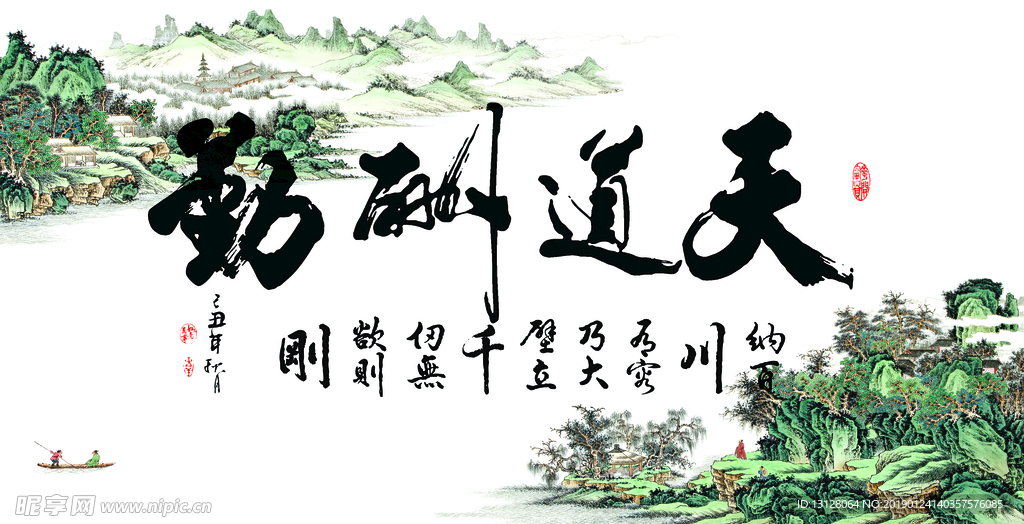 天道酬勤
納百川有容乃大壁立千仞無欲則剛
己丑年秋月
昵享网 www.nipic.cn
ID:13128064 NO:20190124140357576085